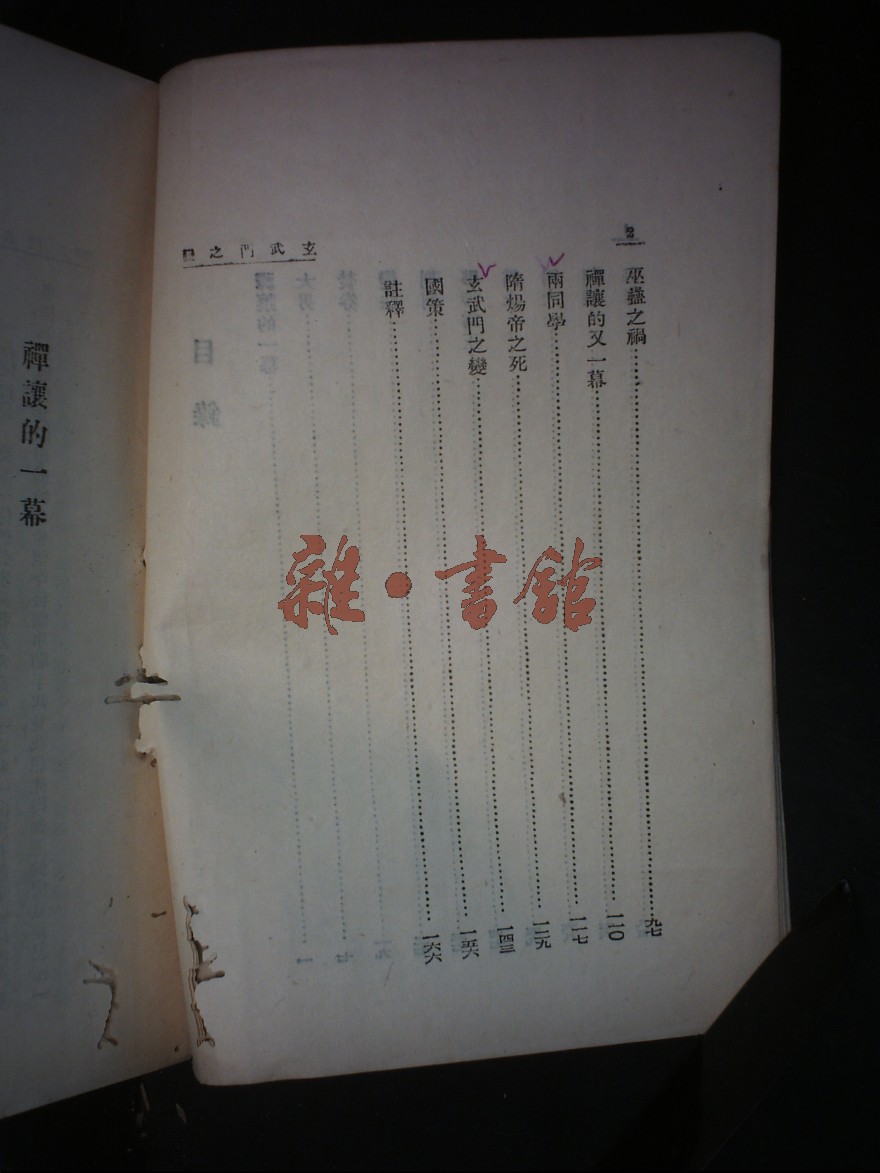 2
巫蠱之禍……九七
禪讓的又一幕……一一〇
兩同學……一一七
隋煬帝之死……一二九
玄武門之變……一四三
國策……一五六
註釋……一六六
玄武門之
目錄
禪讓的一幕
雜·書館